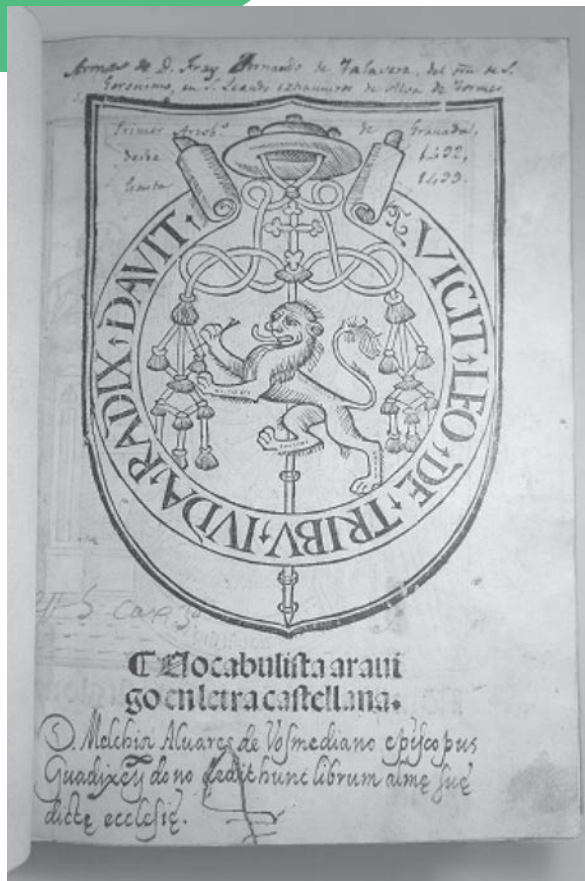 Armas de D. Fray Fernando de Talavera, del orn. de S.
Geronimo, en S. Leonardo extramuros de Alba de Tormes
Primer Arzob.º de Granada,
desde 1492,
hasta 1499.
VICIT · LEO · DE · TRIBV · IVDA · RADIX · DAVIT ·
Uocabulista araui
go en letra castellana.
Melchior Aluares de Vosmediano episcopus
Guadixeñ dono dedit hunc librum almę suę
dictę ecclesię.